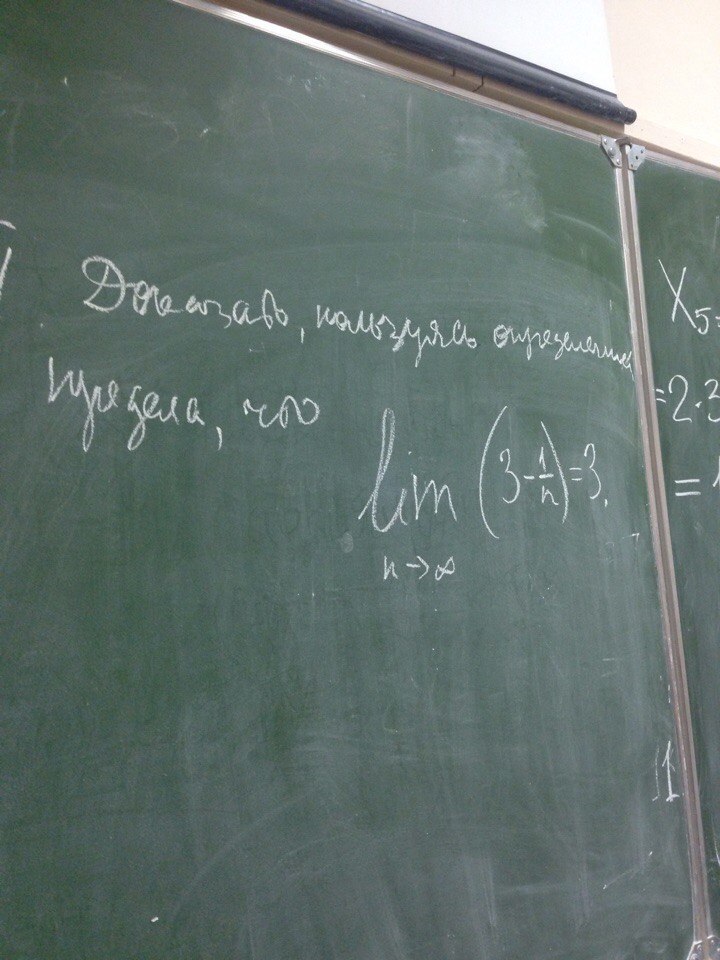 Доказать, пользуясь определением
предела, что
lim (3 - 1/n) = 3.
n→∞
X₅
=2·3
=
11